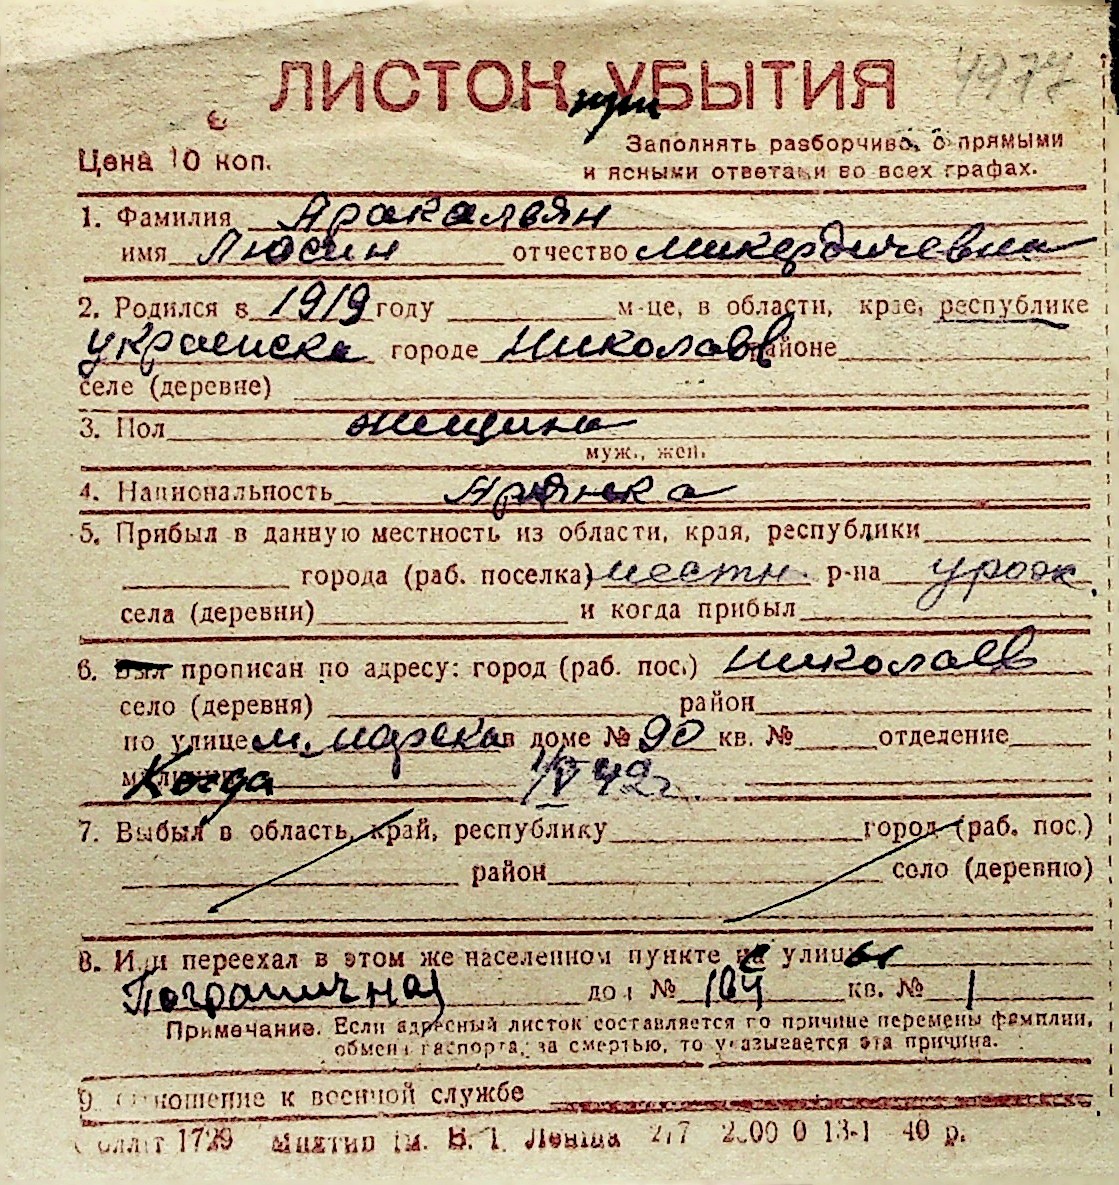 4977
ЛИСТОК при УБЫТИЯ
Цена 10 коп.
Заполнять разборчиво, с прямыми
и ясными ответами во всех графах.
1. Фамилия Аракальян
имя Люсин отчество Микердичевна
2. Родился в 1919 году м-це, в области, крае, республике
украинска городе Николаев районе
селе (деревне)
3. Пол женщина
муж., жен.
4. Национальность
5. Прибыл в данную местность из области, края, республики
города (раб. поселка) местн. р-на урож.
села (деревни) и когда прибыл
6. Был прописан по адресу: город (раб. пос.) Николаев
село (деревня) район
по улице М. Морска в доме № 90 кв. № отделение
милиции Когда 1/IV 42г.
7. Выбыл в область, край, республику город (раб. пос.)
район село (деревню)
8. Или переехал в этом же населенном пункте с улицы
Пограничная дом № 104 кв. № 1
Примечание. Если адресный листок составляется по причине перемены фамилии,
обмена паспорта, за смертью, то указывается эта причина.
9. Отношение к военной службе
1729 ім. В. І. Леніна 277 13-1 40 р.